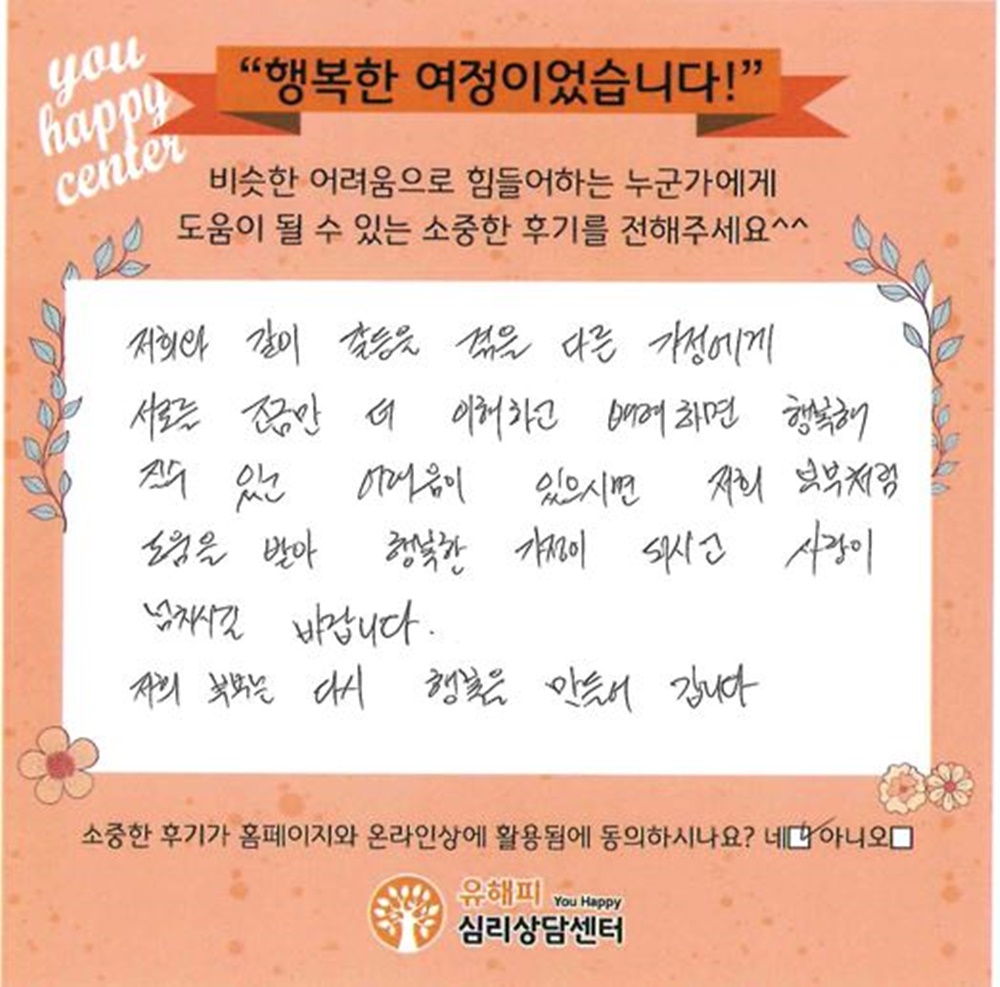 you
happy
center
“행복한 여정이었습니다!”
비슷한 어려움으로 힘들어하는 누군가에게
도움이 될 수 있는 소중한 후기를 전해주세요^^
저희와 같이 갈등을 겪을 다른 가정에게
서로를 조금만 더 이해하고 배려하면 행복해
질수 있고 어려움이 있으시면 저희 부부처럼
도움을 받아 행복한 가정이 되시고 사랑이
넘치시길 바랍니다.
저희 부부는 다시 행복을 만들어 갑니다
소중한 후기가 홈페이지와 온라인상에 활용됨에 동의하시나요? 네☑ 아니오☐
유해피 You Happy
심리상담센터